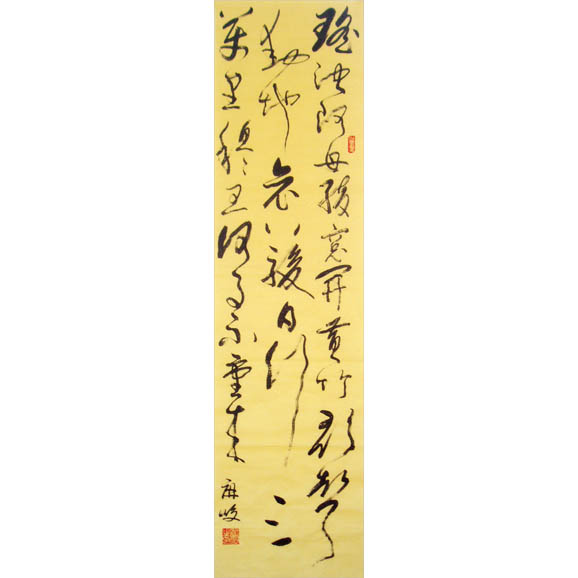 瑤池阿母綺窗開黃竹歌聲
動地哀八駿日行三
萬里穆王何事不重來